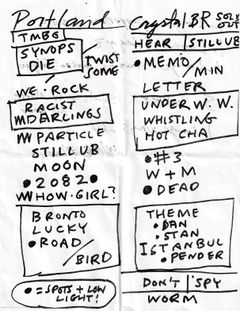 Portland
TMBG
SYNOPS
DIE
TWIST
SOME
WE·ROCK
RACIST
MDARLINGS
PARTICLE
STILLUB
MOON
•2082•
HOW·GIRL?
BRONTO
LUCKY
•ROAD/
BIRD
•=SPOTS+LOW
LIGHT!
Crystal BR SOLD
OUT
HEAR / STILLUB
•MEMO/
MIN
LETTER
UNDER W.W.
WHISTLING
HOT CHA
•#3
W+M
•DEAD
THEME
•DAN
•STAN
ISTANBUL
•PENDER
DON'T / SPY
WORM